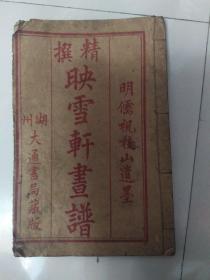 明儒祝枝山遺墨
精撰
映雪軒畫譜
湖州
大通書局藏版